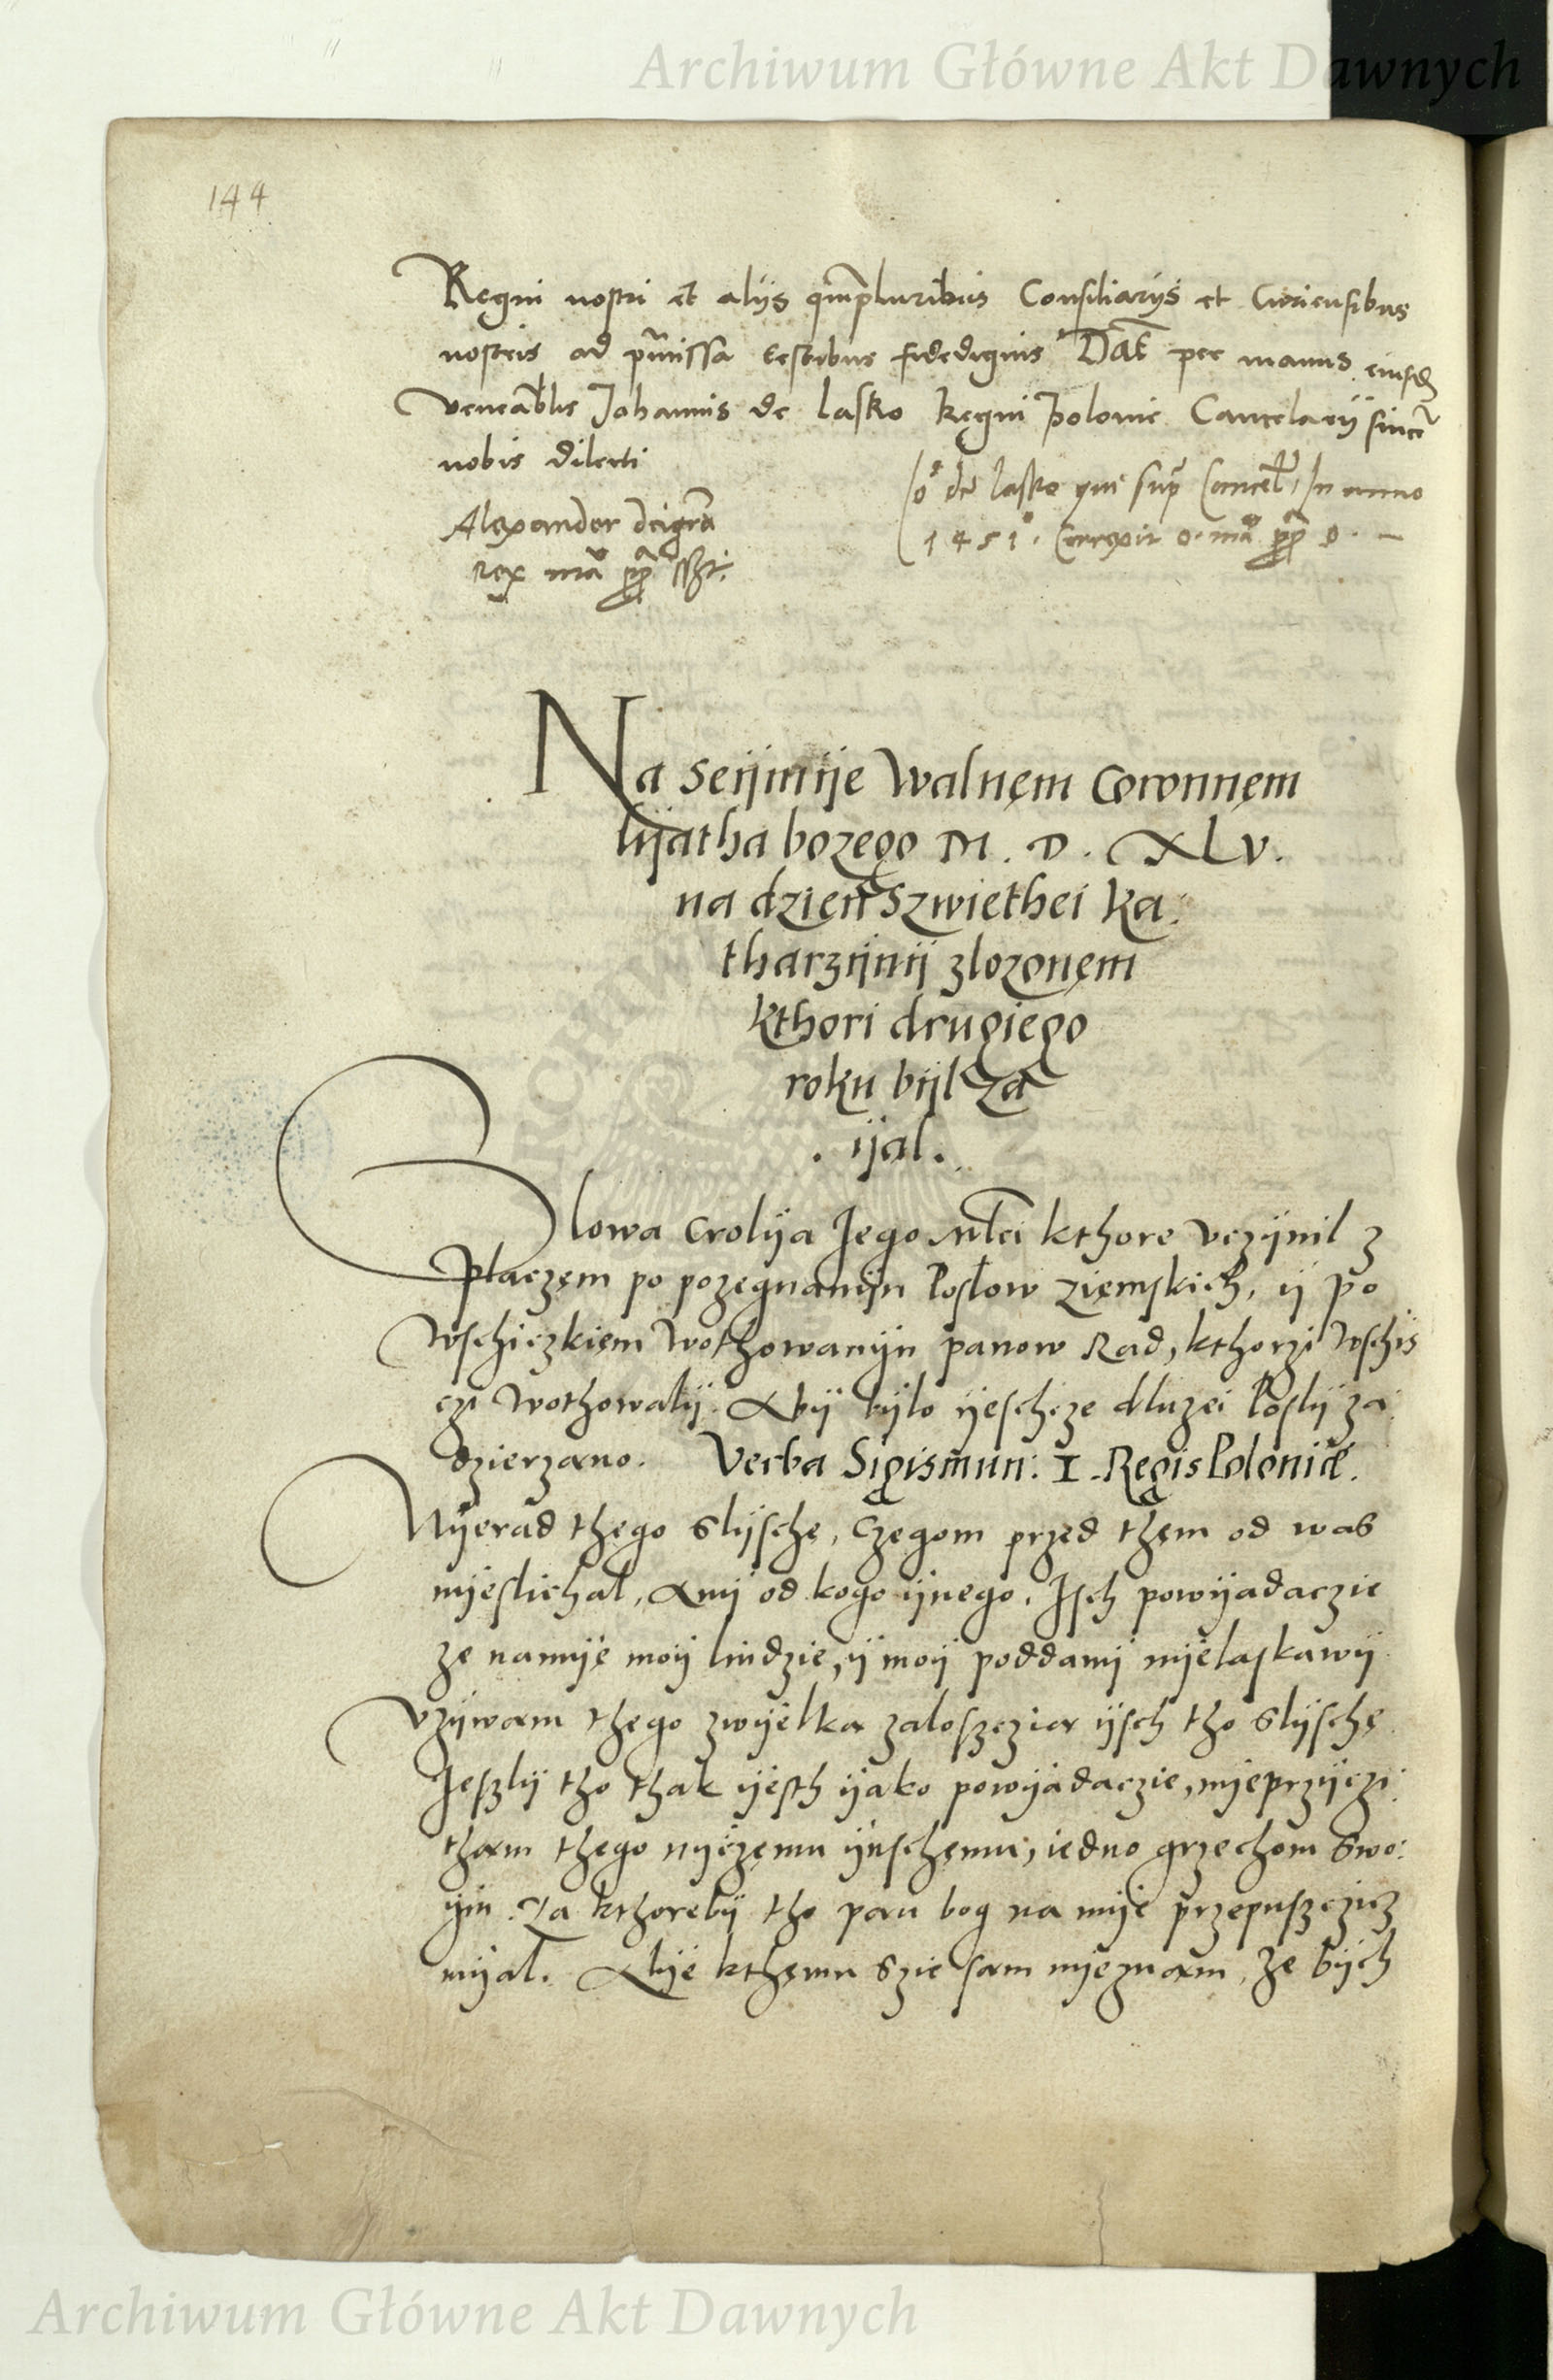 Archiwum Główne Akt Dawnych
144
Regni nostri et alijs qmpluribus Consiliarijs et Curiensibus
nostris ad pmissa testibus fidedignis Dat per manus eiusd
veneablis Johannis de Lasko Regni Polonie Cancelarij since
nobis dilecti
Alexander dei gra
rex ma ppa sszt:
Jo de Lasko qui sup Cancel, In anno
1451 Correxit ma pp
Na seijmije walnęm coronnęm
lijatha bozego M. D. XLV.
na dzień Szwiethei Ka:
tharzijnij zlozonęm
kthori drugiego
roku bijl za
. ijal .
Slowa Crolija Jego Młci kthore vczijnil z
Płaczęm po pozegnanijn Posłow Zięmskich, ij po
wschiczkięm wothowanijn panow Rad, kthorzi wschis
czi wothowalij. Abij bijlo ijeschcze dluzei Poslij za
dzierzano. Verba Sigismun: I. Regis Poloniæ.
Nijerad thego slijschę, Czegom przed thęm od was
nijeslichal, Anij od kogo ijnego. Isch powijadaczie
ze namije moij liudzie, ij moij poddanij nijelaskawij
Vzijwam thego zwijelka zaloszczia ijsch tho slijschę
Jeszlij tho thak ijesth ijako powijadaczie, nijeprzijczi:
tham thego nyczęmu ijnschęmu, iedno grzechom swo:
ijm. Za kthorebij tho pan bog na mije przepuszczicz
mijal. Alije kthęmu szie sam nijeznam, ze bijch
Archiwum Główne Akt Dawnych